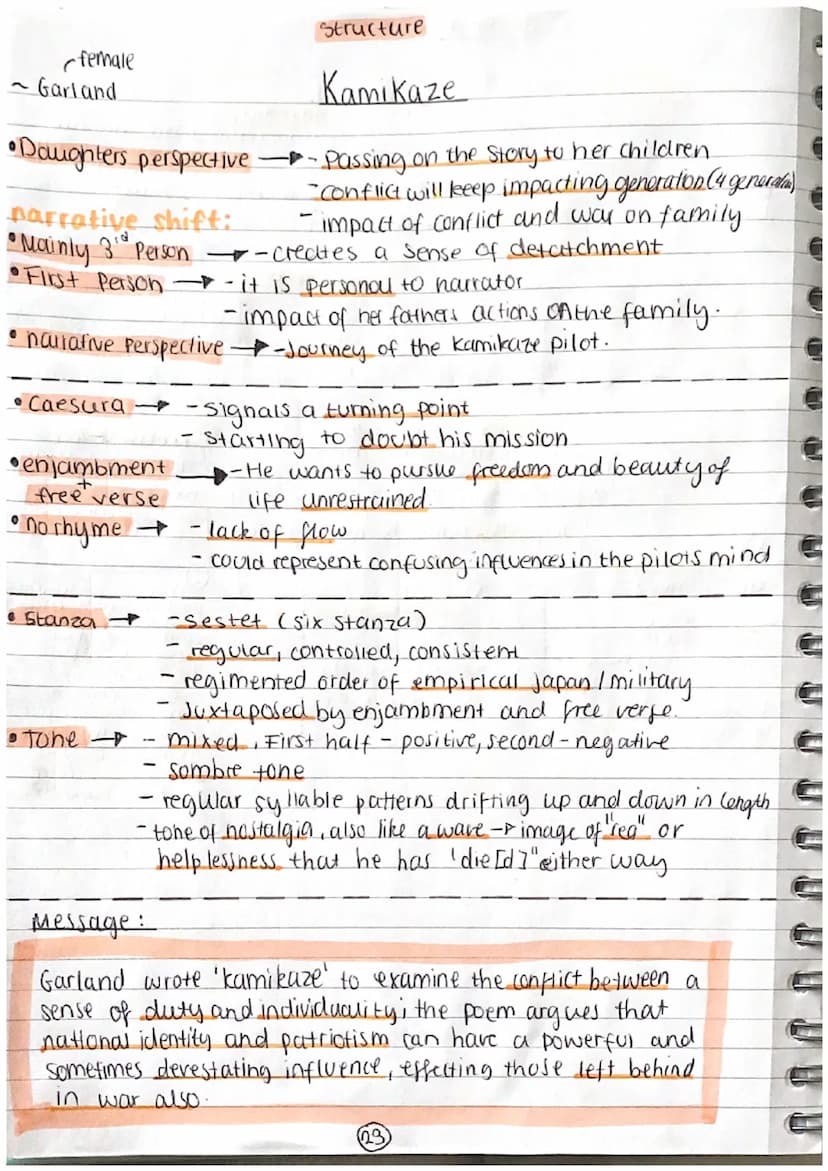 Structure
female
~ Garland
Kamikaze
• Daughters perspective → - Passing on the story to her children
- conflict will keep impacting generation (4 generation)
- impact of conflict and war on family
narrative shift:
• Mainly 3rd Person → - creates a sense of detatchment
• First Person → - it is personal to narrator
- impact of her fathers actions on the family.
• narrative perspective → - Journey of the kamikaze pilot.
• Caesura → - signals a turning point
- starting to doubt his mission
• enjambment → - He wants to pursue freedom and beauty of
+
free verse
life unrestrained.
• no rhyme → - lack of flow
- could represent confusing influences in the pilots mind
• Stanza → - sestet (six stanza)
- regular, controlled, consistent
- regimented order of empirical Japan / military
- Juxtaposed by enjambment and free verse.
• Tone → - mixed, First half - positive, second - negative
- sombre tone
- regular syllable patterns drifting up and down in length
- tone of nostalgia, also like a wave → image of "sea" or
helplessness that he has 'die[d]" either way
Message:
Garland wrote 'kamikaze' to examine the conflict between a
sense of duty and individuality; the poem argues that
national identity and patriotism can have a powerful and
sometimes devestating influence, effecting those left behind
in war also.
23